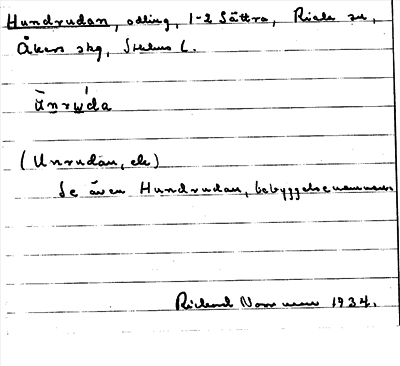 Hundrudan, odling, 1-2 Sättra, Riala sn,
Åkers skg, Sthlms l.
ùnrùda
(Unrudan, ek)
Se även Hundrudan, bebyggelsenamnen
Richard 1934.